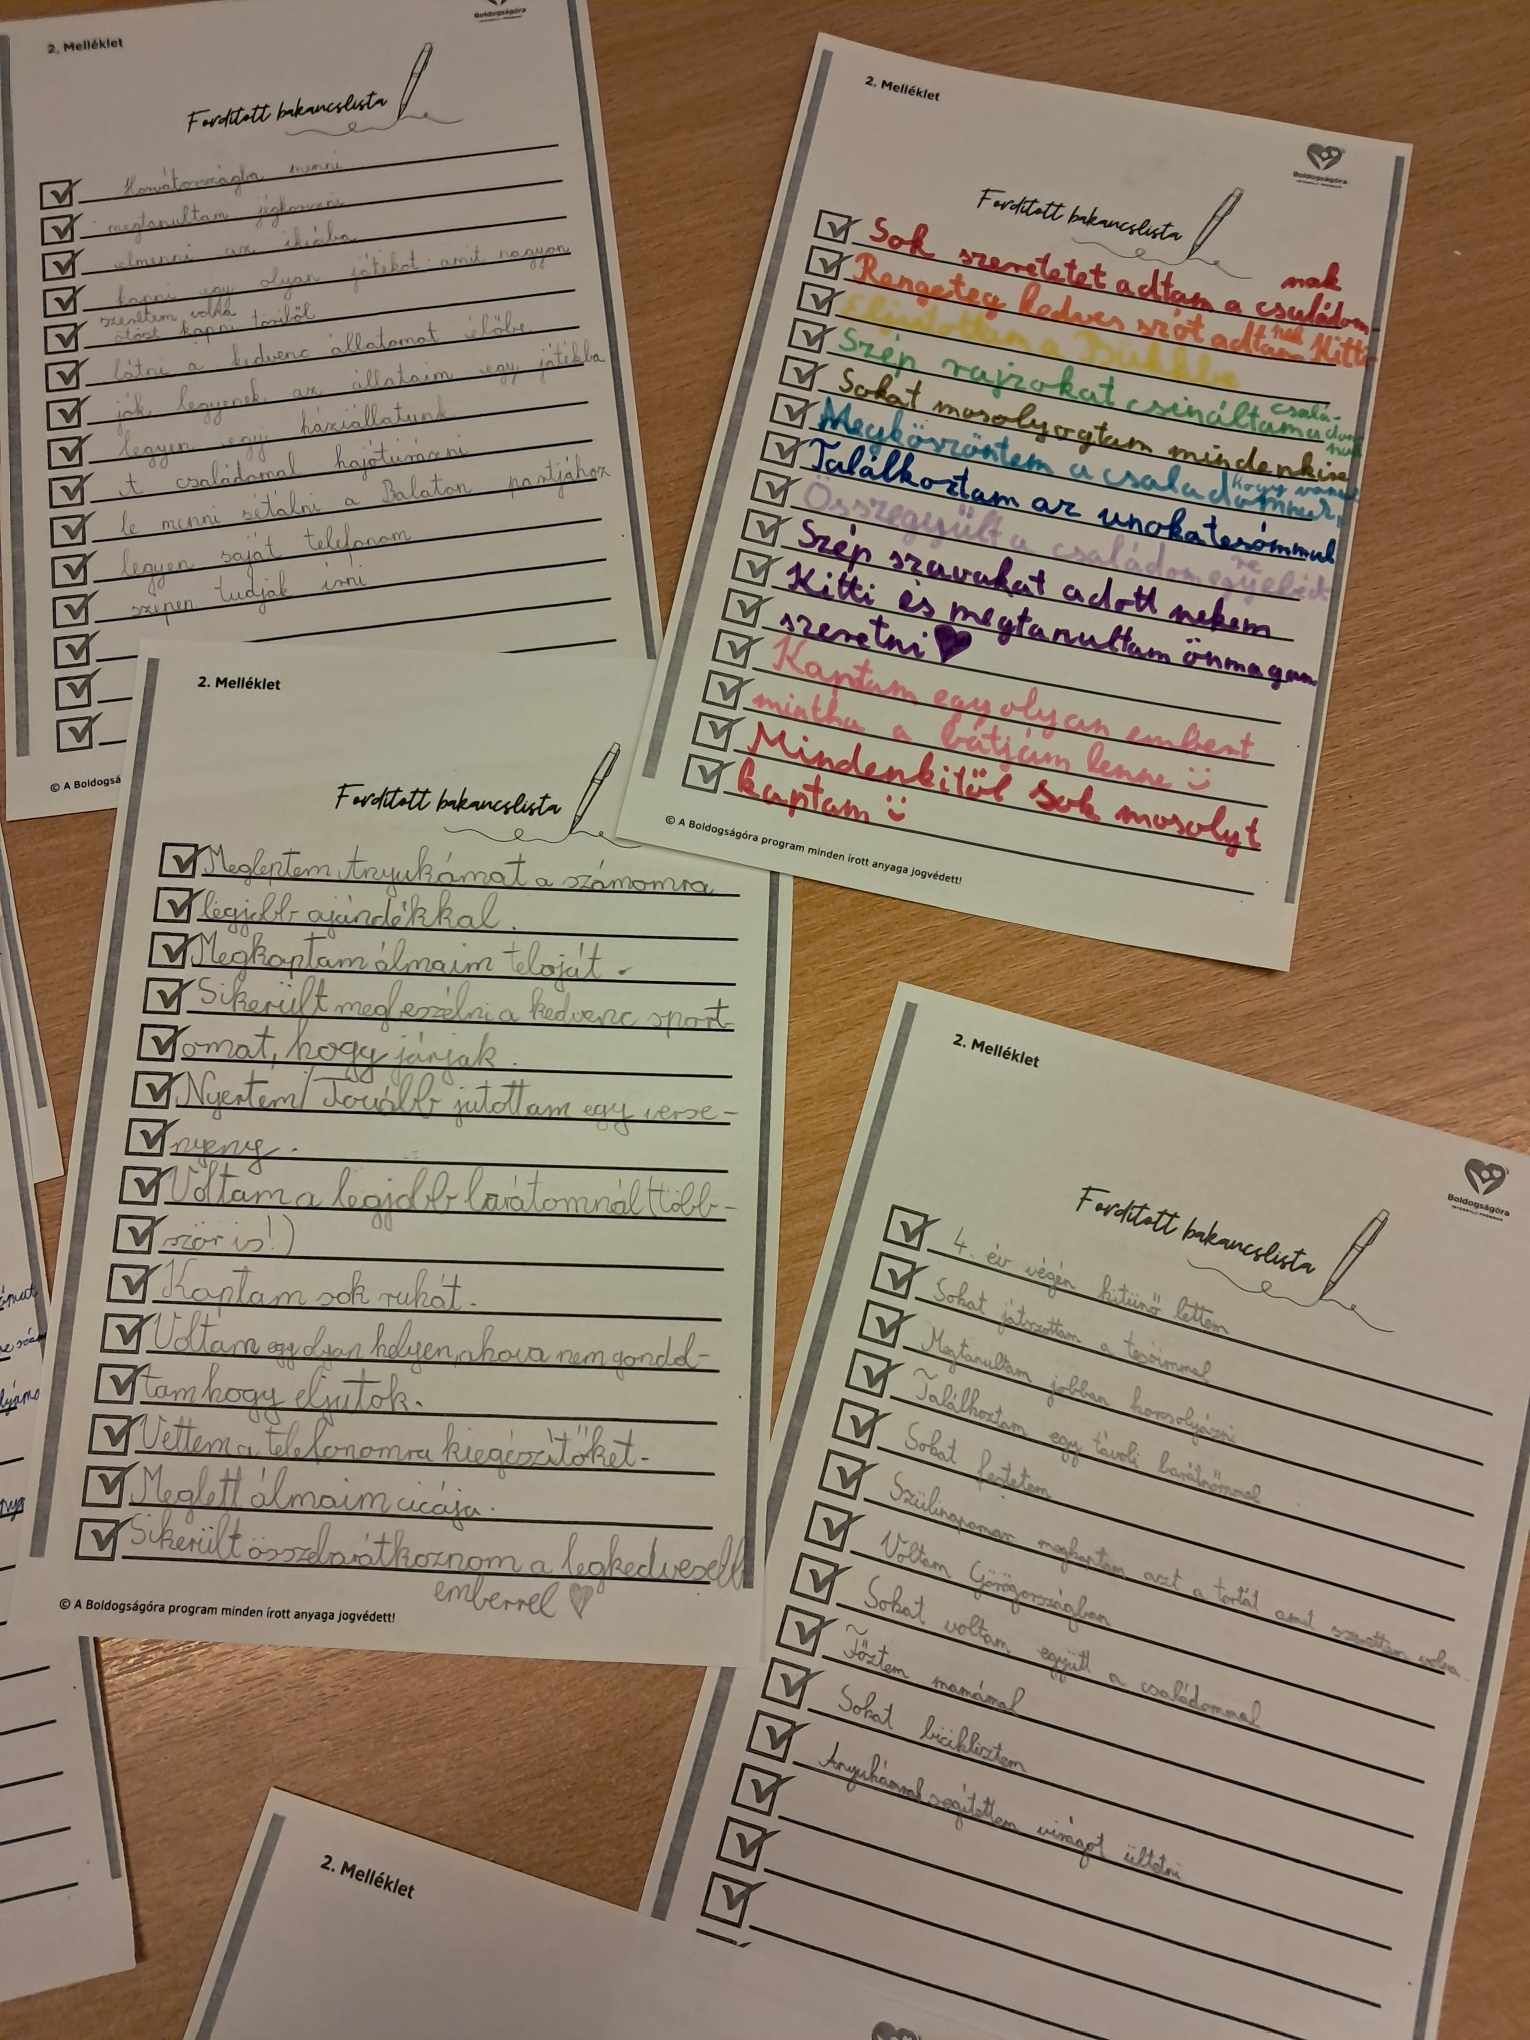 2. Melléklet
Boldogságóra
Fordított bakancslista
Horvátországba menni
megtanultam jégkorizni
elmenni az ikeába
kapni egy olyan játékot amit nagyon
szerettem volna
ötöst kapni töriből
látni a kedvenc állatomat élőbe
jók legyenek az állataim egy játékba
legyen egy háziállatunk
A családomal hajótúrázni
le menni sétálni a Balaton partjához
legyen saját telefonom
szépen tudjak írni
© A Boldogsá
2. Melléklet
Boldogságóra
Fordított bakancslista
Sok szeretetet adtam a családom-
nak
Rengeteg kedves szót adtam Kitti
nek
Eljutottam a Bükkbe
Szép rajzokat csináltam a
csalá-
Sokat mosolyogtam mindenkire
Megköszöntem a családomnak,
hogy
Találkoztam az unokatesómmal
Összegyűlt a családom egy ebéd
re
Szép szavakat adott nekem
Kitti és megtanultam önmagam
szeretni
Kaptam egy olyan embert
mintha a bátyám lenne
Mindenkitől sok mosolyt
kaptam
© A Boldogságóra program minden írott anyaga jogvédett!
2. Melléklet
Fordított bakancslista
Megleptem Anyukámat a számomra
legjobb ajándékkal.
Megkaptam álmaim teloját.
Sikerült megbeszélni a kedvenc sport
omat, hogy járjak.
Nyertem/Tovább jutottam egy verse-
nyeny.
Voltam a legjobb barátomnál (több-
ször is!)
Kaptam sok ruhát.
Voltam egy olyan helyen, ahova nem gondol-
tam hogy eljutok.
Vettem a telefonomra kiegészítőket.
Meglett álmaim cicája.
Sikerült összebarátkoznom a legkedvesebb
emberrel
© A Boldogságóra program minden írott anyaga jogvédett!
2. Melléklet
Boldogságóra
Fordított bakancslista
4. év végén kitünő lettem
Sokat játszottam a tesóimmal
Megtanultam jobban korcsolyázni
Találkoztam egy távoli barátnőmmel
Sokat festetem
Szülinapomar megkaptam azt a tortát amit szerettem volna
Voltam Görögországban
Sokat voltam együtt a családommal
Főztem mamámal
Sokat bicikliztem
Anyukámnal segítettem virágot ültetni
2. Melléklet